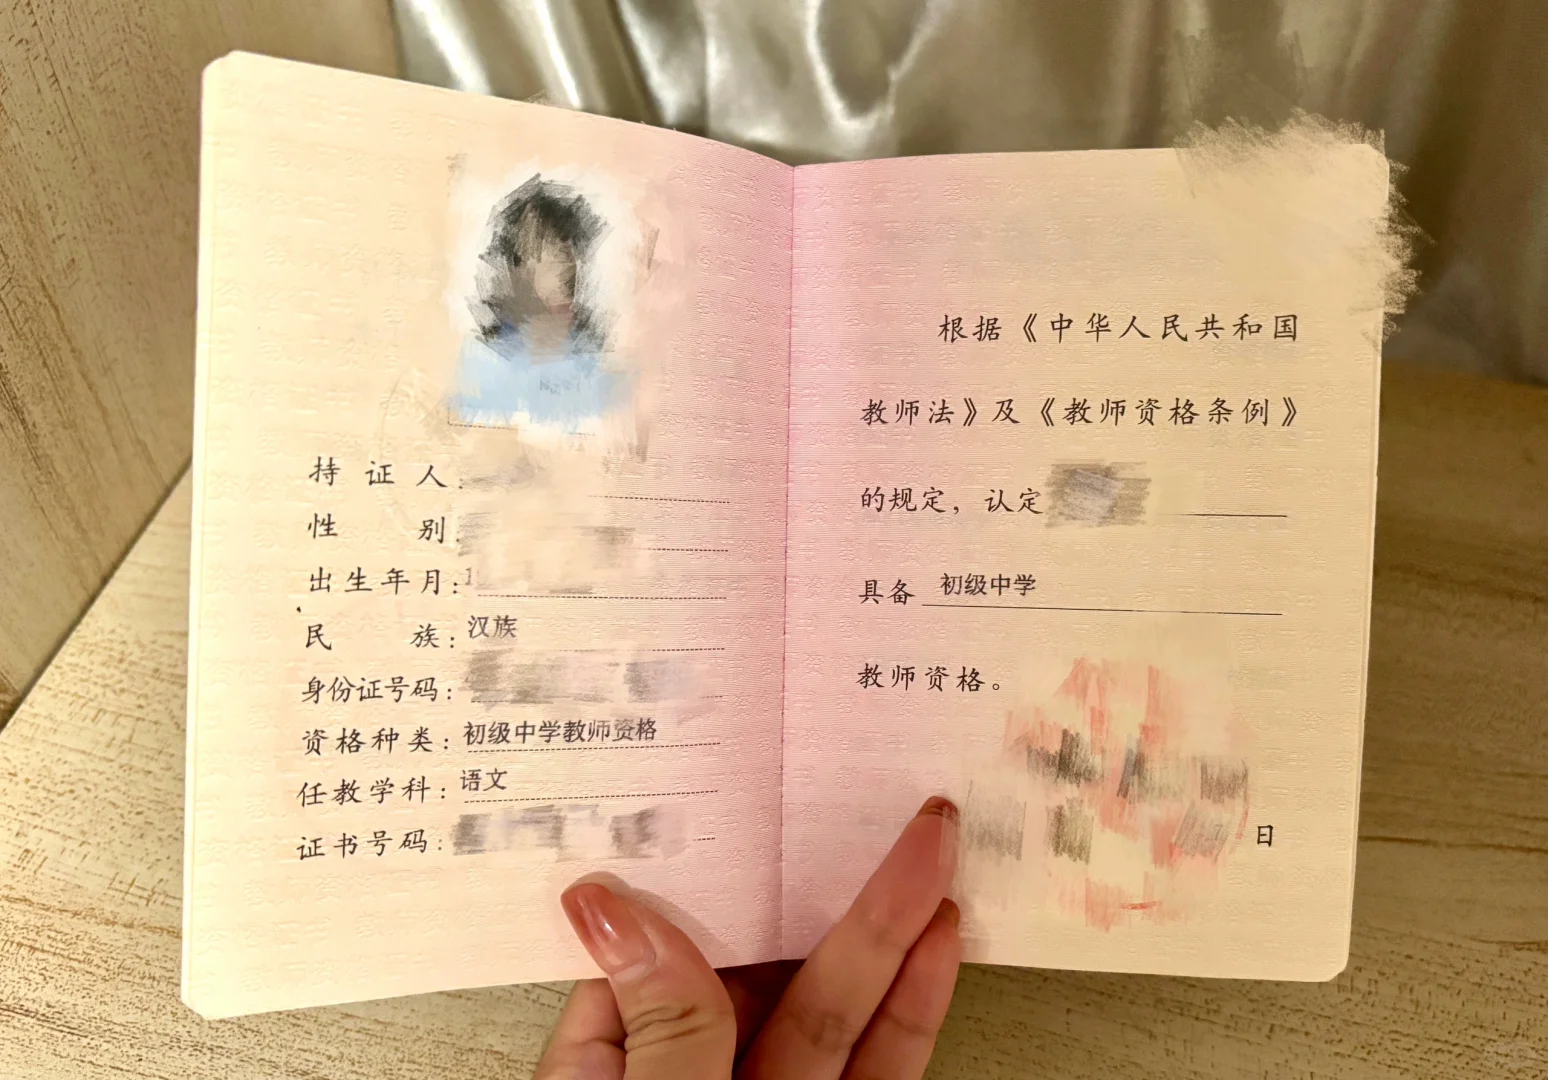 持证人:
性别:
出生年月:
民族:汉族
身份证号码:
资格种类:初级中学教师资格
任教学科:语文
证书号码:
根据《中华人民共和国
教师法》及《教师资格条例》
的规定，认定
具备 初级中学
教师资格。
日